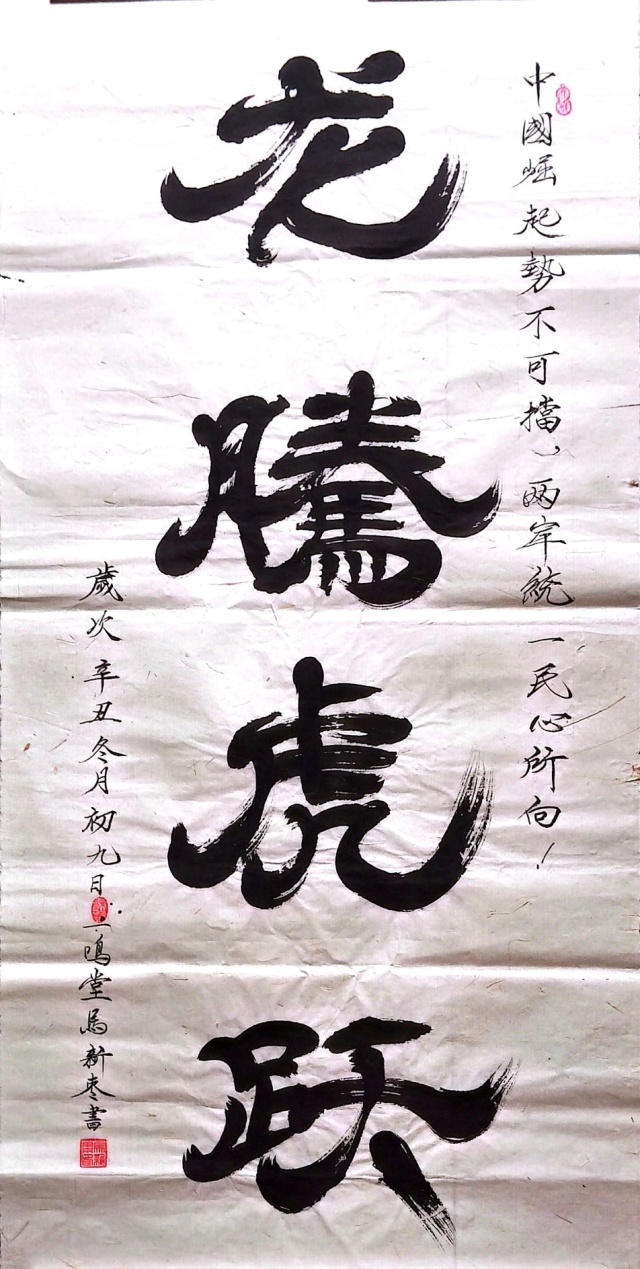 中國崛起勢不可擋、两岸統一民心所向！
龙騰虎跃
歲次辛丑冬月初九日一鳴堂馬新枣書